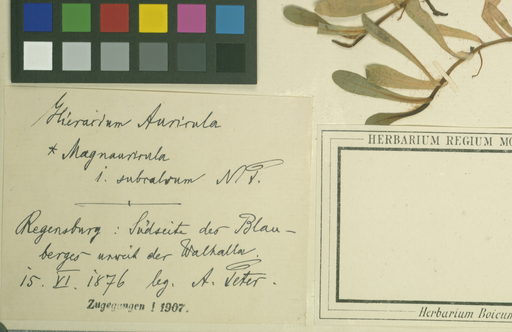 Hieracium Auricula
* Magnauricula
i. subcalvum NP.
Regensburg : Südseite des Blau–
berges unweit der Walhalla.
15. VI. 1876 leg. A. Peter.
Zugegangen ! 1907.
HERBARIUM REGIUM MO
Herbarium Boicum